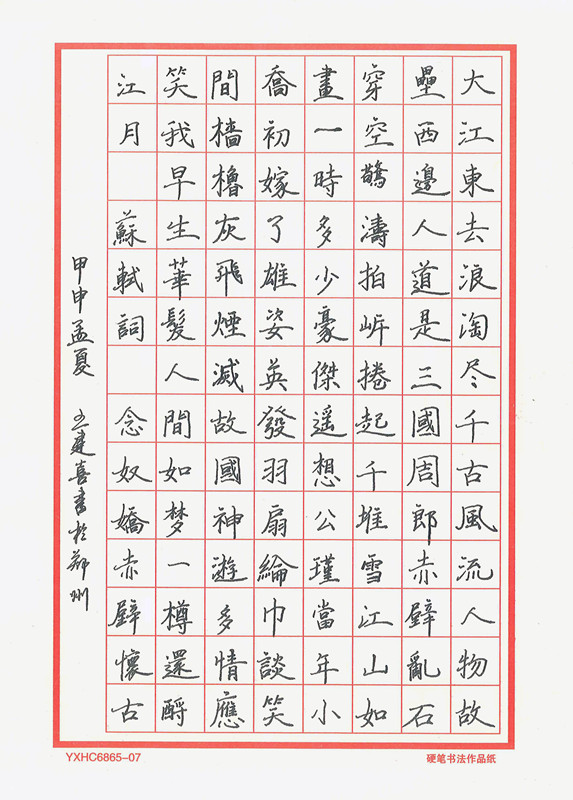 大江東去浪淘尽千古風流人物故
壘西邊人道是三國周郎赤壁亂石
穿空驚濤拍岍捲起千堆雪江山如
畫一時多少豪傑遥想公瑾當年小
喬初嫁了雄姿英發羽扇綸巾談笑
間檣櫓灰飛煙滅故國神遊多情應
笑我早生華髮人間如梦一樽還酹
江月 蘇軾詞 念奴嬌赤壁懷古
甲申孟夏 王建喜書於鄭州
YXHC6865-07
硬笔书法作品纸